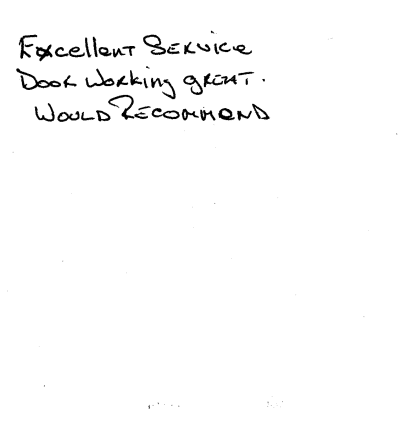 Excellent Service
Door Working great.
Would Recommend